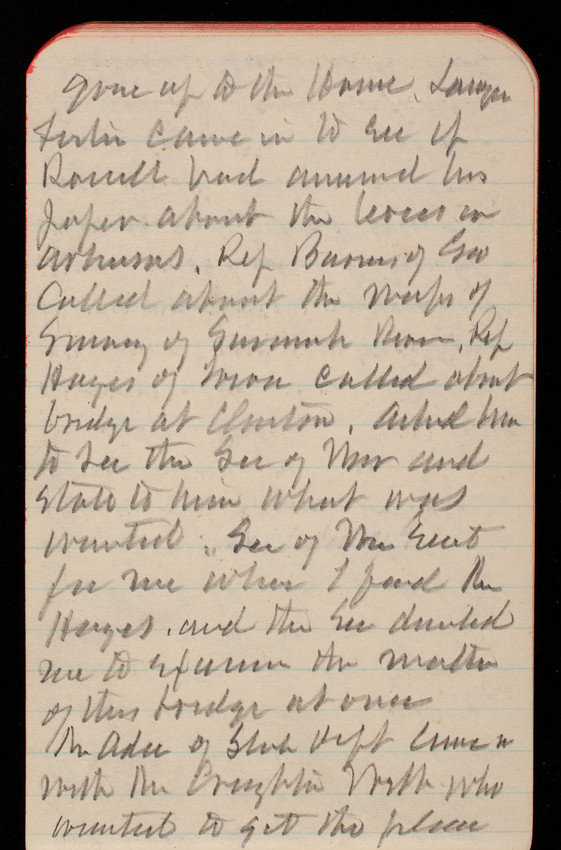 gone up to the House. Lawyer
came in to see if
had annured his
paper about the levees in
Arkansas. Rep Barnes of Geo
Called about the maps of
Survey of Savanah River. Rep
Hayes of Iowa called about
bridge at Clinton. Asked him
to see the Sec of War and
State to him what was
wanted. Sec of War Sent
for me when I found Mr
Hayes. and the Sec directed
me to examine the matter
of this bridge at once
Mr Adee of State Dept came in
with Mr Creighton Webb who
wanted to get the place